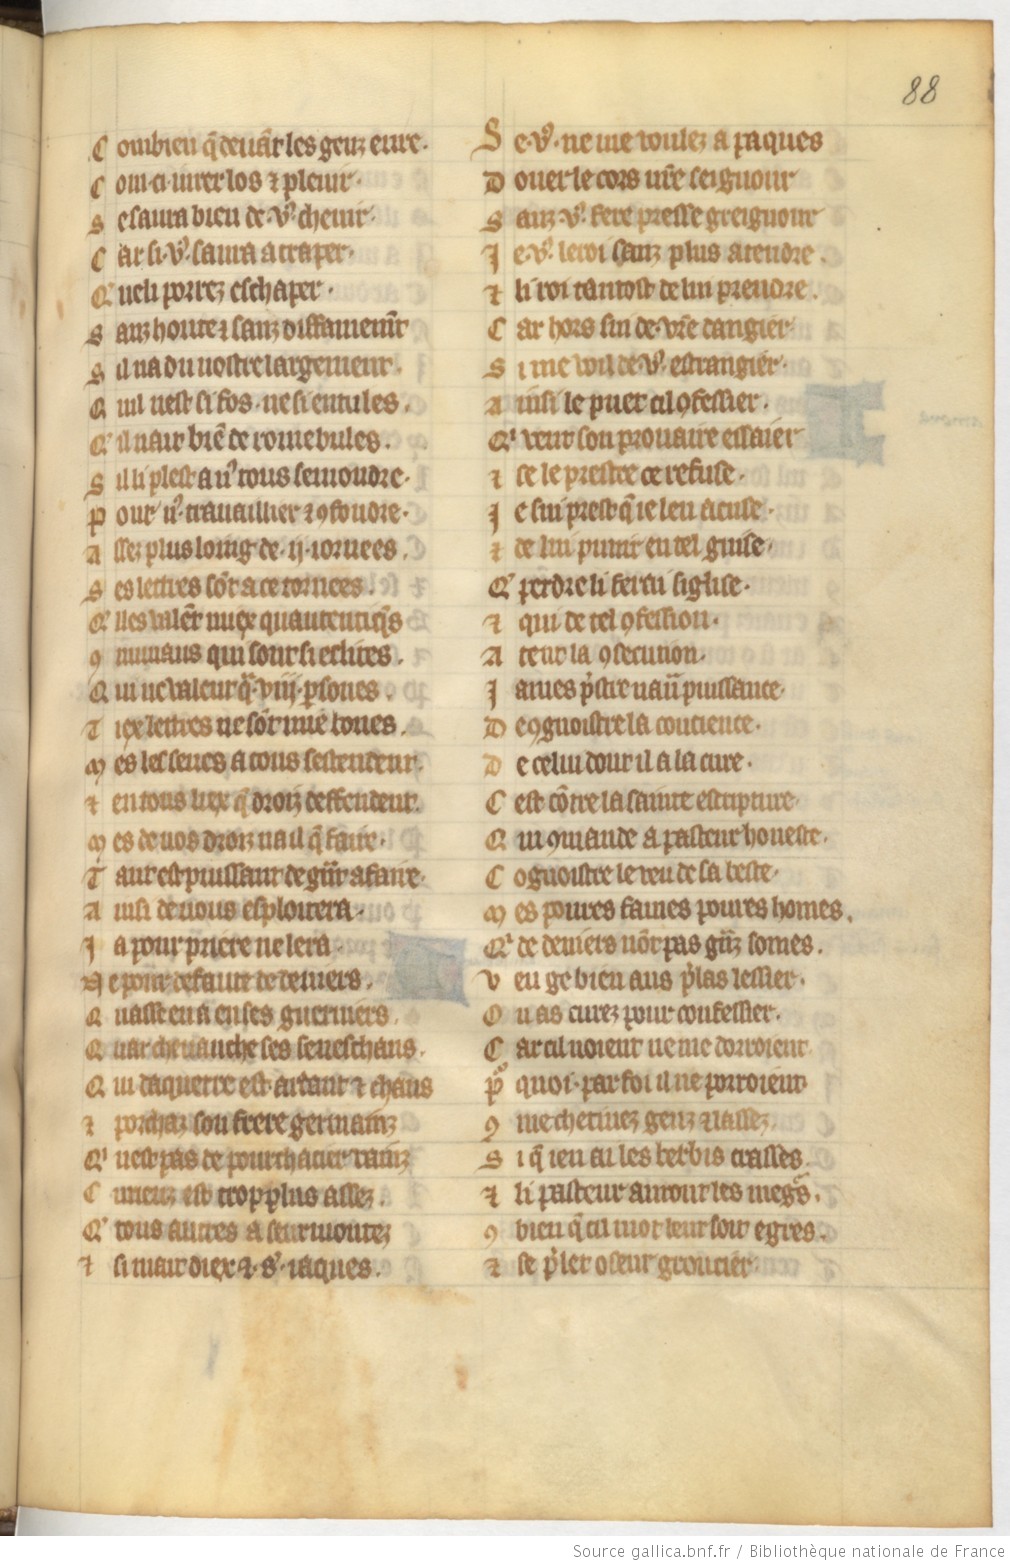 88
C ombien q̃ deuãt les genz eure.
C om ci mire los ⁊ plenir.
S e saura bien de .vꝰ. cheuir.
C ar si .vꝰ. saura atraper.
Q ueli porrez eschaper.
S anz honte ⁊ sanz diffamem̃t
S il na du uostre largement.
Q uil nest si fos. ne si entules.
Q' il nait biẽ de rome bules.
S il li plest a uꝰ tous semondre.
P our uꝰ. trauaillier ⁊ ꝯfondre.
A ssez plus loing de .ij. iornees.
S es lettres sõt a ce tornees.
Q' lles valẽt miex quautentiq̃s
ꝯ munaus qui sont si eslites.
Q ui ne valent q̃ .viij. ꝑsones.
T iex lettres ne sõt mie bones.
M es les seues a tous sestendent.
⁊ en tous liex q̃ droiz deffendent.
M es de uos droiz na il q̃ faire.
T ant est puissant de gñt afaire.
A insi de uous esploitera.
J a pour priere ne lera.
N e pour defaute de deniers.
Q uasse en a en ses guerniers.
Q uar cheuauche ses seneschaus.
Q ui daquerre est ardant ⁊ chaus
⁊ porchaz son frere germainz
Q' nest pas de pourchacier tainz
C mienz est trop plus assez.
Q' tous autres a seurmontez
⁊ si mait diex ⁊ .sꝰ. iaques.
S e .vꝰ. ne me voulez a paques
D oner le cors nr̃e seignour
S anz .vꝰ. fere presse greignour
J e .vꝰ. leroi sanz plus atendre.
⁊ li roi tantost de lui prendre.
C ar hors sui de vr̃e dangier
S i me vuil de .vꝰ. estrangier.
A insi se puet cil ꝯfessier.
Q' veut son prouaire essaier
⁊ se le prestre ce refuse.
J e sui prest q̃ ie len acuse.
⁊ de lui punir en tel guise.
Q' perdre li feroi siglise.
⁊ qui de tel ꝯfession.
A tent la ꝯsecution.
J ames p̃stre nau᷑ puissance.
D e ꝯgnoistre la concience.
D e celui dont il a la cure.
C est cõtre la sainte escripture.
Q ui ꝯmande a pasteur honeste.
C ognoistre le veu de sa beste.
M es poures fames poures homes.
Q' de deniers nõt pas gñz somes.
V eu ge bien aus p̃las lessier.
O u as curez pour confessier.
C ar cil noient ne me dorroient.
P quoi. par foi il ne porroient
ꝯ me chetiuez genz ⁊ lassez.
S i q̃ ien ai les berbis crasses.
⁊ li pasteur auront les megr̃s.
ꝯ bien q̃ cil mot leur soit egres.
⁊ se p̃lat osent groucier
Source gallica.bnf.fr / Bibliothèque nationale de France